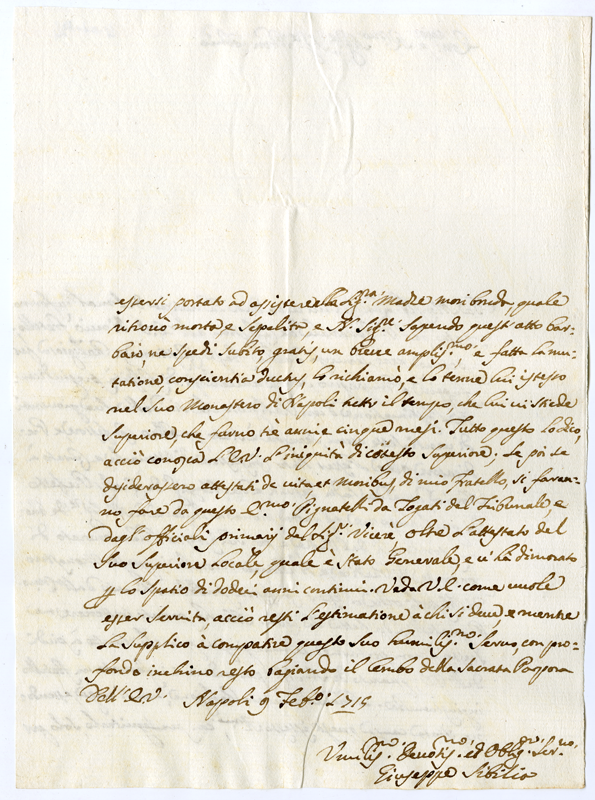 essersi portato ad assistere alla Sig.ra Madre moribonda, quale
ritrovò morta e sepolita, e N. Sig.re Sapendo quest'atto bar-
baro, ne spedì subito, gratis, un breve amplis.mo, e fatta la mu-
tatione, conscientia ductus, lo richiamò, e lo tenne lui istesso
nel suo Monastero di Napoli tutto il tempo, che lui vi stiede
Superiore, che furno trè anni e cinque mesi. Tutto questo lo dico,
acciò conosca l'E.V. l'iniquità di cotesto Superiore; Se poi se
desiderassero attestati de vita, et moribus, di mio fratello, si faran-
no fare da questo E.mo Pignatelli da Togati del Tribunale, e
dagl'officiali primarij del Sig.r Vicerè oltre l'attestato del
suo Superiore Locale, quale è stato Generale, e vi hà dimorato
p lo spatio di dodeci anni continui. Veda V.E. come vuole
esser servita, acciò resti l'estimatione à chi si deve, e mentre
La supplico à compatire questo suo humilis.mo Servo, con pro-
fondo inchino resto baciando il Lembo della Sacrata Porpora
Dell'E.V. Napoli 9 Feb.o 1715
Umilis.mo Devotis.mo et Oblig.mo Ser.vo
Giuseppe Sibilio